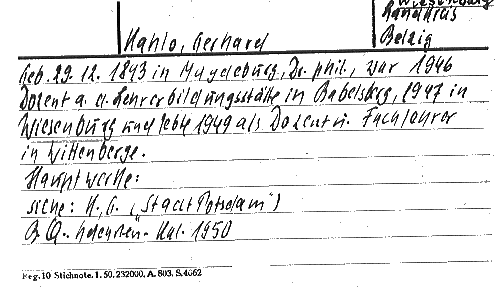 Wiesenburg
Landkreis
Kahlo, Gerhard
Belzig
Geb. 29. 12. 1893 in Magdeburg, Dr. phil., war 1946
Dozent a. d. Lehrerbildungsstätte in Babelsberg, 1947 in
Wiesenburg und lebte 1949 als Dozent u. Fachlehrer
in Wittenberge.
Hauptwerke:
siehe: K, G. („Stadt Potsdam")
Kal. 1950
Reg. 10 Stichnote. 1. 50. 232000. A. 803. S. 4662